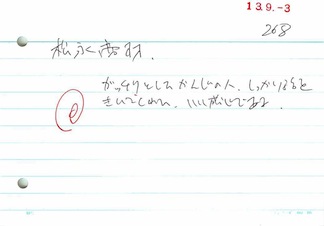 13.9.-3
268
松永
がっちりとしたかんじの人、しっかり話を
きいてくれた、いい感じである.